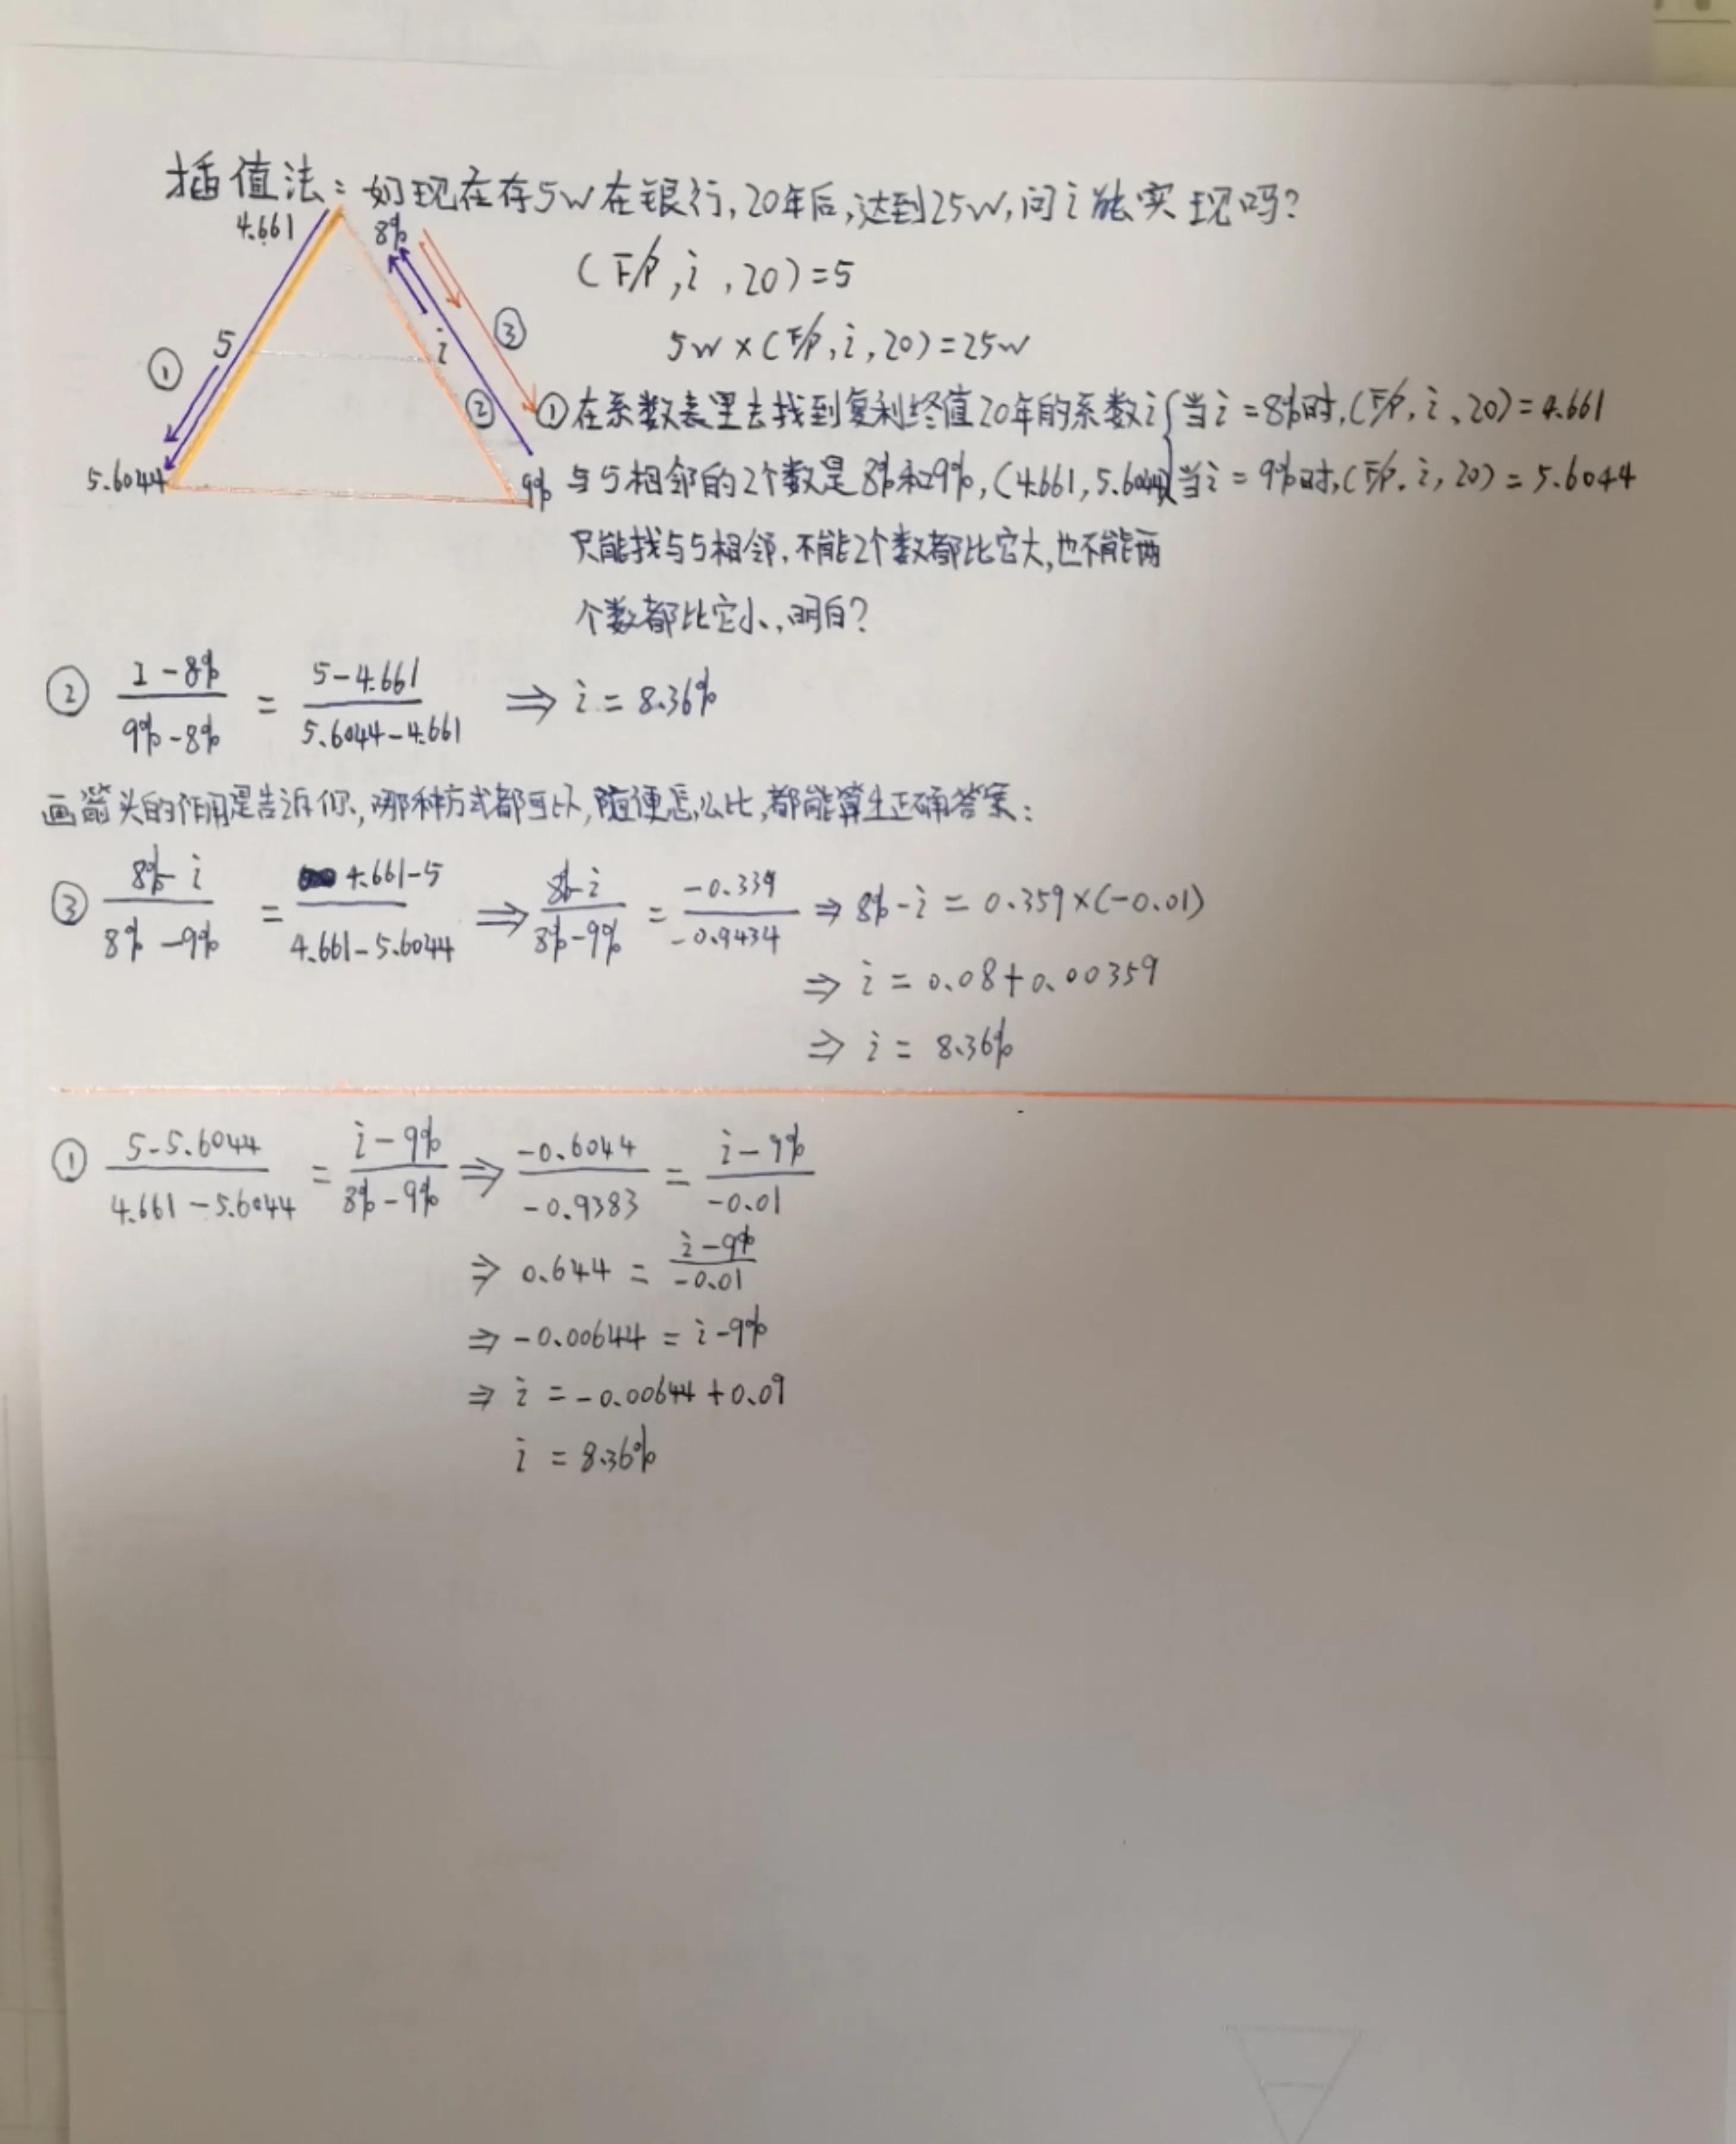 插值法：如现在存5w在银行，20年后，达到25w，问i能实现吗？
4.661
8%
(F/P，i，20)=5
5w×(F/P，i，20)=25w
5
i
①
②
③
5.6044
9%
①在系数表里去找到复利终值20年的系数i
当i=8%时，(F/P，i、20)=4.661
与5相邻的2个数是8%和9%，(4.661，5.6044)
当i=9%时，(F/P，i，20)=5.6044
只能找与5相邻，不能2个数都比它大，也不能两
个数都比它小，明白？
② I-8%/9%-8% = 5-4.661/5.6044-4.661 ⇒ i=8.36%
画箭头的作用是告诉你，哪种方式都可以，随便怎么比，都能算出正确答案：
③ 8%-i/8%-9% = 4.661-5/4.661-5.6044 ⇒ 8%-i/8%-9% = -0.339/-0.9434 ⇒ 8%-i=0.359×(-0.01)
⇒ i=0.08+0.00359
⇒ i=8.36%
① 5-5.6044/4.661-5.6044 = i-9%/8%-9% ⇒ -0.6044/-0.9383 = i-9%/-0.01
⇒ 0.644 = i-9%/-0.01
⇒ -0.00644=i-9%
⇒ i=-0.00644+0.09
i=8.36%